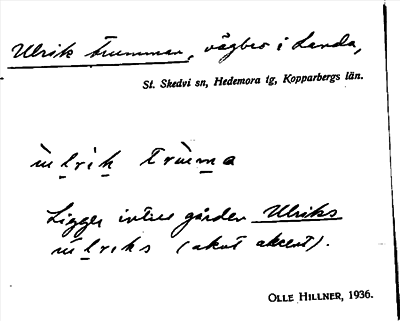 Ulrik Trumman, vägbro i Landa,
St. Skedvi sn, Hedemora tg, Kopparbergs län.
ùlrìk trùma
Ligger intill gården Ulriks
úlriks (akut akcent).
OLLE HILLNER, 1936.